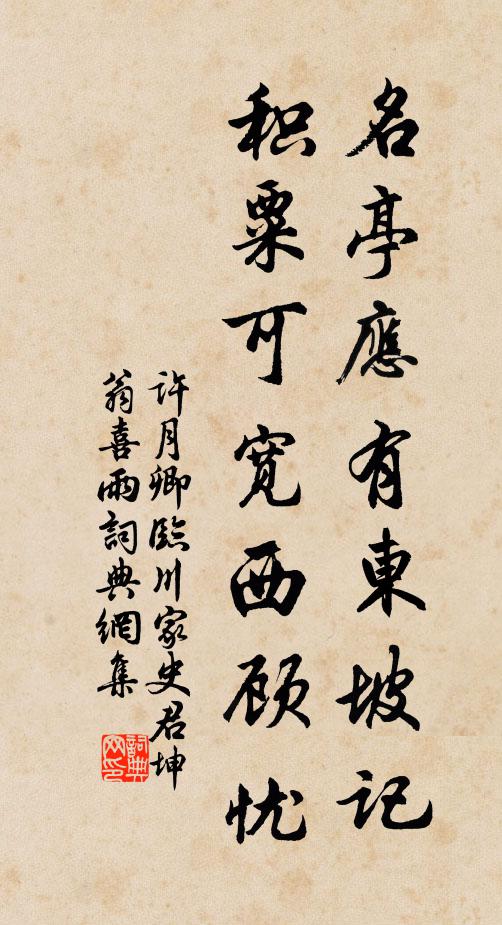 名亭應有東坡記
积粟可宽西顾忧
許月卿臨川家史君坤
翁喜雨詞典網集
詞典网印